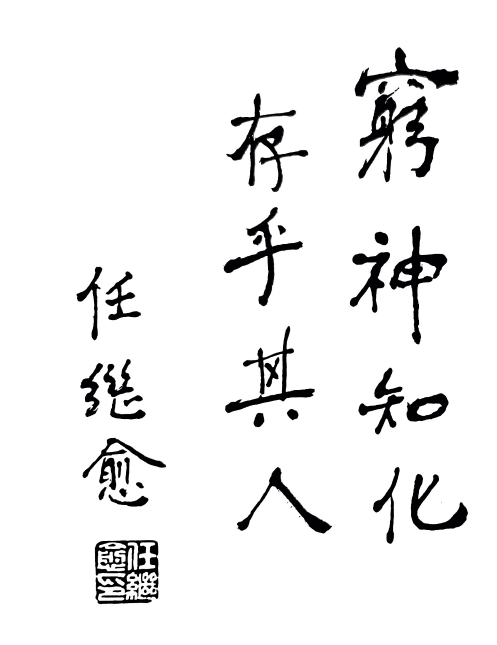 窮神知化
存乎其人
任继愈
任繼愈印